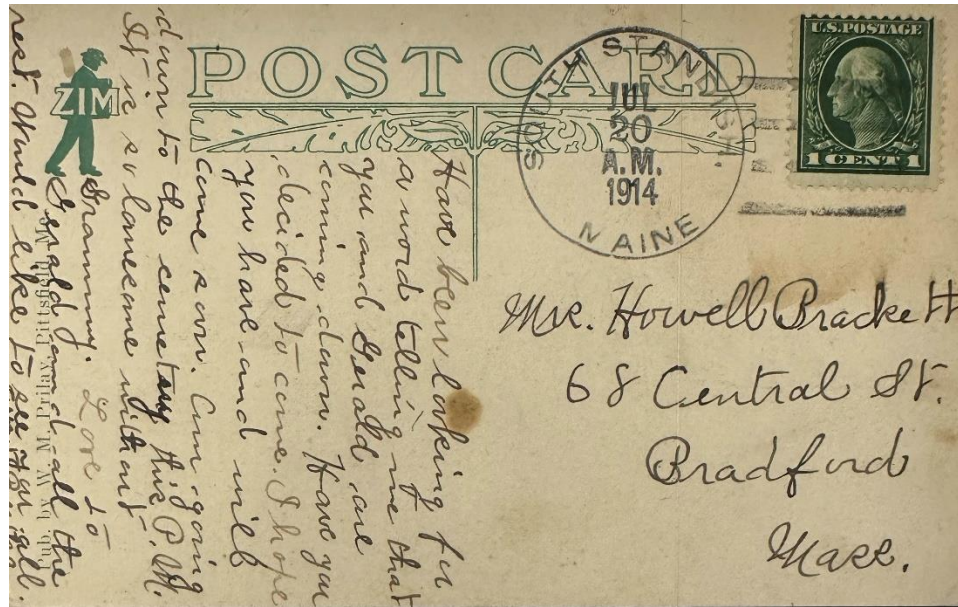 POST CARD
ZIM
SOUTH STANDISH
JUL
20
A.M.
1914
MAINE
U.S. POSTAGE
1 CENT 1
Have been looking for
a word telling me that
you and Gerald are
coming down. Have you
decided to come. I hope
you have and will
come soon. Am going
down to the cemetery this P.M.
It is so lonesome without
Grammy. Love to
Gerald and all the
rest. Would like to see you all.
Pub. by W. M. Prilay, Pittsfield, Me.
Mrs. Howell Brackett
68 Central St.
Bradford
Mass.